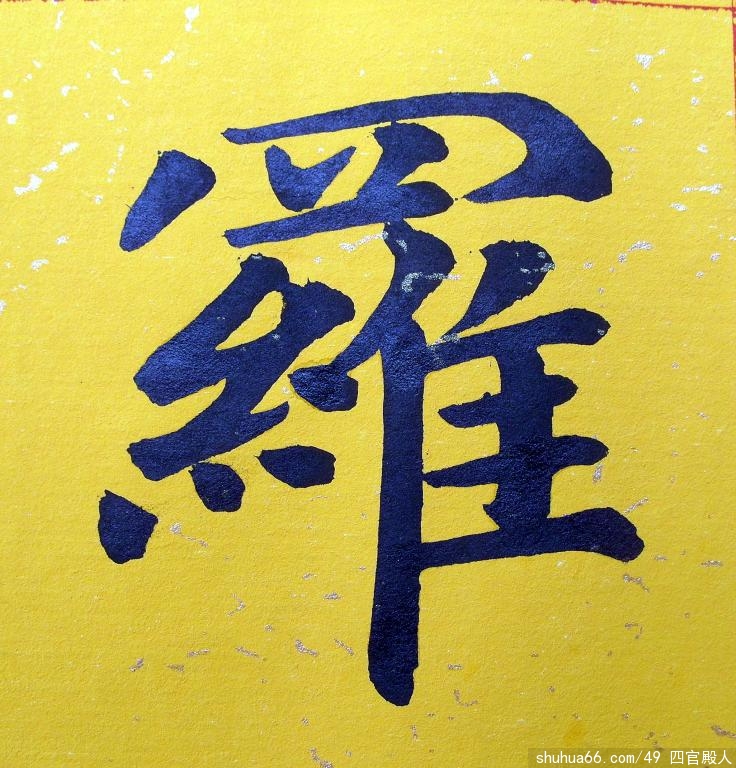 羅
shuhua66.com/49 四官殿人